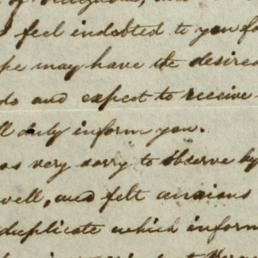 feel indebted to you fo
pe may have the desire
do and expect to receive
ll duly inform you.
as very sorry to observe by
well, and felt anxious
duplicate which inform